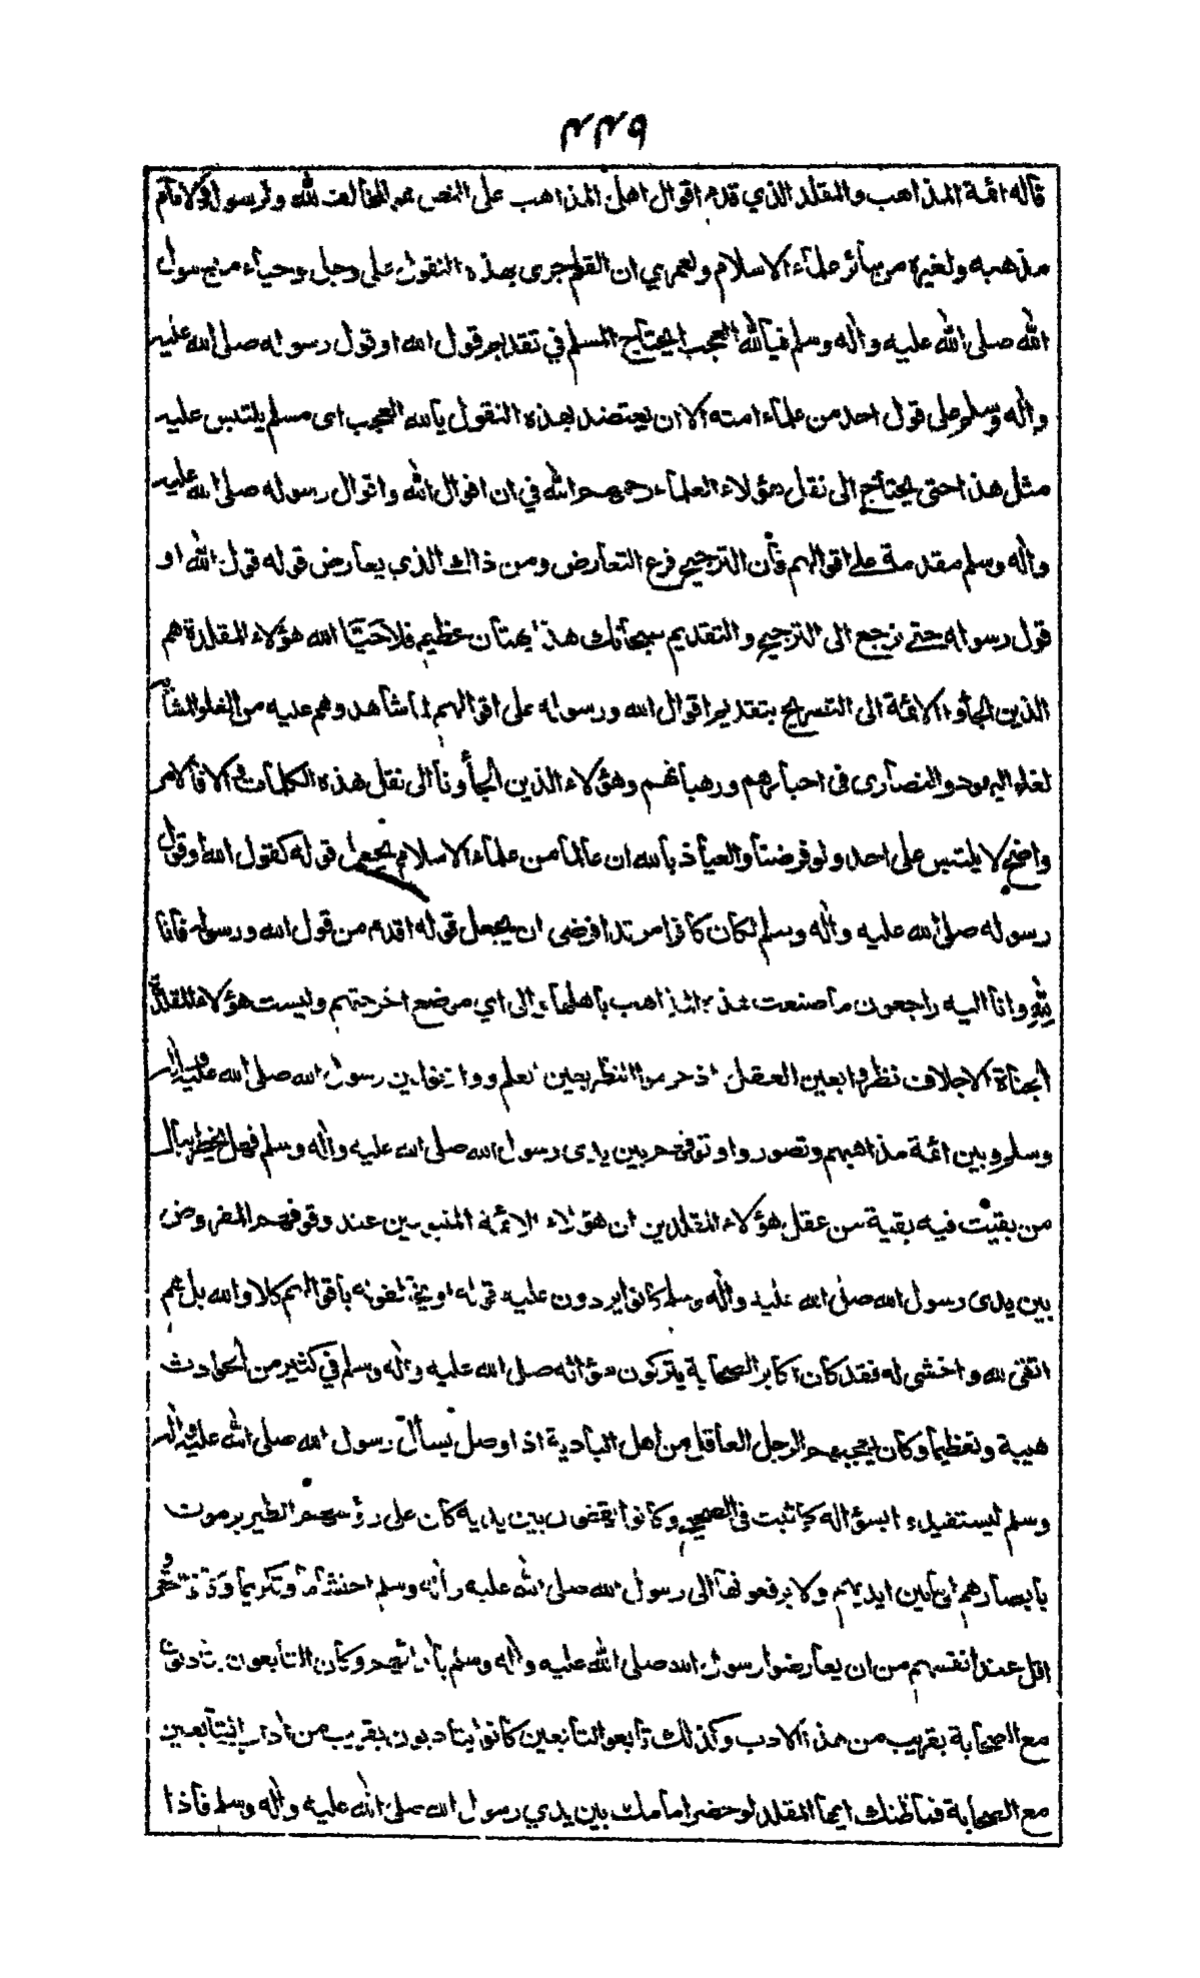 ٢٢٩
قاله ائمة المذاهب والمقلد الذي قدم اقوال اهل المذاهب على النص هو المخالف لله ولرسوله ولامام
مذهبه ولغيره من سائر علماء الاسلام ولعمري ان القلم جرى بهذه النقول على وجل وحياء من رسول
الله صلى الله عليه واله وسلم فيالله العجب ايحتاج المسلم في تقديم قول الله او قول رسوله صلى الله عليه
واله وسلم على قول احد من علماء امته الا ان يعتضد بهذه النقول يالله العجب اى مسلم يلتبس عليه
مثل هذا حتى يحتاج الى نقل هؤلاء العلماء رحمهم الله في ان اقوال الله واقوال رسوله صلى الله عليه
واله وسلم مقدمة على اقوالهم فان الترجيح فرع التعارض ومن ذاك الذي يعارض قوله قول الله او
قول رسوله حتى نرجع الى الترجيح والتقديم سبحانك هذا بهتان عظيم فلا حيّا الله هؤلاء المقلدة هم
الذين الجأوا الائمة الى التصريح بتقديم اقوال الله ورسوله على اقوالهم لما شاهدوهم عليه من الغلو المشابه
لغلو اليهود والنصارى فى احبارهم ورهبانهم وهؤلاء الذين الجأونا الى نقل هذه الكلمات والا فالامر
واضح لا يلتبس على احد ولو فرضنا والعياذ بالله ان عالما من علماء الاسلام يجعل قوله كقول الله او قول
رسوله صلى الله عليه واله وسلم لكان كافرا مرتدا فرضى ان يجعل قوله اقدم من قول الله ورسوله فانا
لله وانا اليه راجعون ما صنعت هذه المذاهب باهلها والى اي موضع اخرجتهم وليست هؤلاء المقلدة
الجناة الاجلاف نظروا بعين العقل اذ حرموا النظر بعين العلم ووازنوا بين رسول الله صلى الله عليه واله
وسلم وبين ائمة مذاهبهم وتصوروا وقوفهم بين يدى رسول الله صلى الله عليه واله وسلم فهل يخطر ببال
من بقيت فيه بقية من عقل هؤلاء المقلدين ان هؤلاء الائمة المتبوعين عند وقوفهم المفروض
بين يدى رسول الله صلى الله عليه واله وسلم كانوا يردون عليه قوله او يخالفونه باقوالهم كلا والله بل هم
اتقى لله واخشى له فقد كان اكابر الصحابة يتركون سؤاله صلى الله عليه واله وسلم في كثير من الحوادث
هيبة وتعظيما وكان يعجبهم الرجل العاقل من اهل البادية اذا وصل يسأل رسول الله صلى الله عليه واله
وسلم ليستفيدوا بسؤاله كما ثبت فى الصحيح وكانوا يقفون بين يديه كان على رؤسهم الطير يرمون
بابصارهم الى بين ايديهم ولا يرفعونها الى رسول الله صلى الله عليه واله وسلم احتشاما وتكريما وكانوا احقر و
اقل عند انفسهم من ان يعارضوا رسول الله صلى الله عليه واله وسلم بآرائهم وكان التابعون يتادبون
مع الصحابة بقريب من هذا الادب وكذلك تابعو التابعين كانوا يتادبون بقريب من آداب التابعين
مع الصحابة فما ظنك ايها المقلد لو حضر امامك بين يدي رسول الله صلى الله عليه واله وسلم فاذا